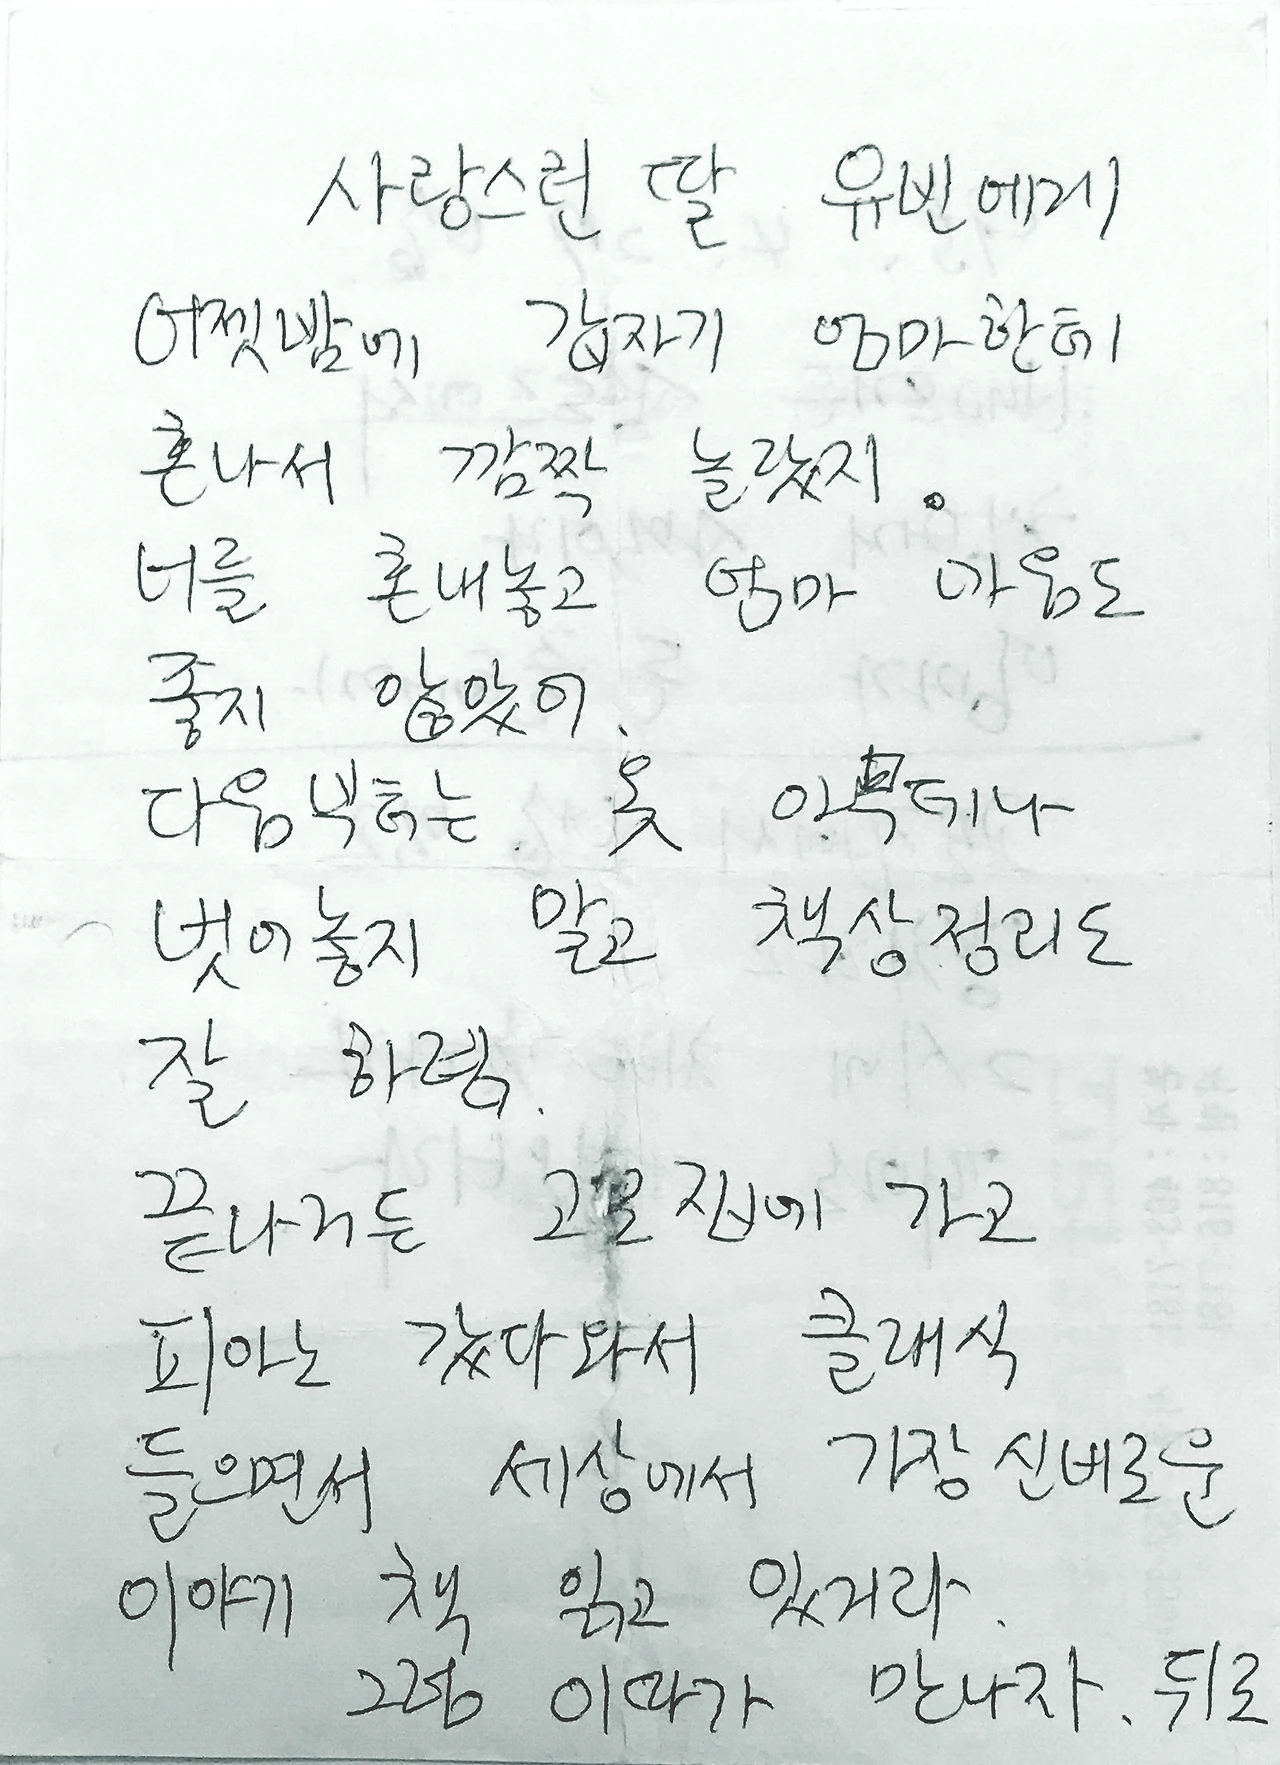 사랑스런 딸 유빈에게
어젯밤에 갑자기 엄마한테
혼나서 깜짝 놀랐지.
너를 혼내놓고 엄마 마음도
좋지 않았어.
다음부터는 옷 아무데나
벗어놓지 말고 책상정리도
잘 하렴.
끝나거든 고모집에 가고
피아노 갔다와서 클래식
들으면서 세상에서 가장 신비로운
이야기 책 읽고 있거라.
그럼 이따가 만나자. 뒤로